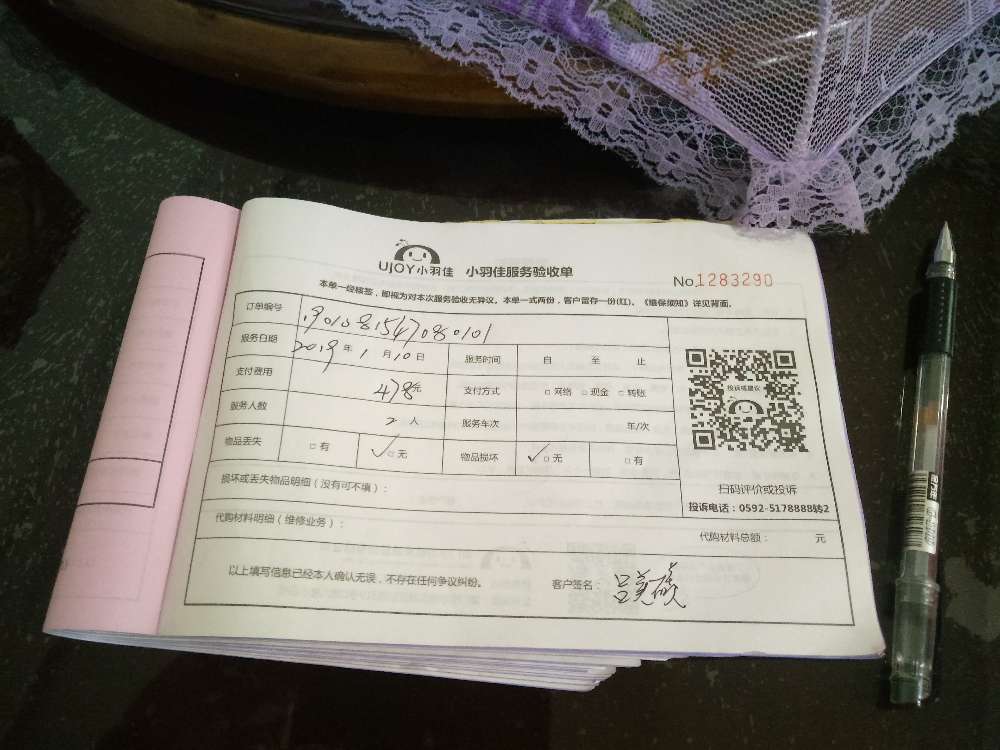 UJOY小羽佳 小羽佳服务验收单
No.1283290
本单一经核签，即视为对本次服务验收无异议。本单一式两份，客户留存一份(红)。《维保须知》详见背面。
订单编号 1901081547080101
服务日期 2019年1月10日 服务时间 自 至 止
支付费用 478元 支付方式 □网络 □现金 □转账
服务人数 2人 服务车次 车/次
物品丢失 □有 ✓□无 物品损坏 ✓□无 □有
投诉或建议
扫码评价或投诉
投诉电话：0592-5178888转2
损坏或丢失物品明细（没有可不填）：
代购材料明细（维修业务）： 代购材料总额： 元
以上填写信息已经本人确认无误，不存在任何争议纠纷。 客户签名：吕美硕